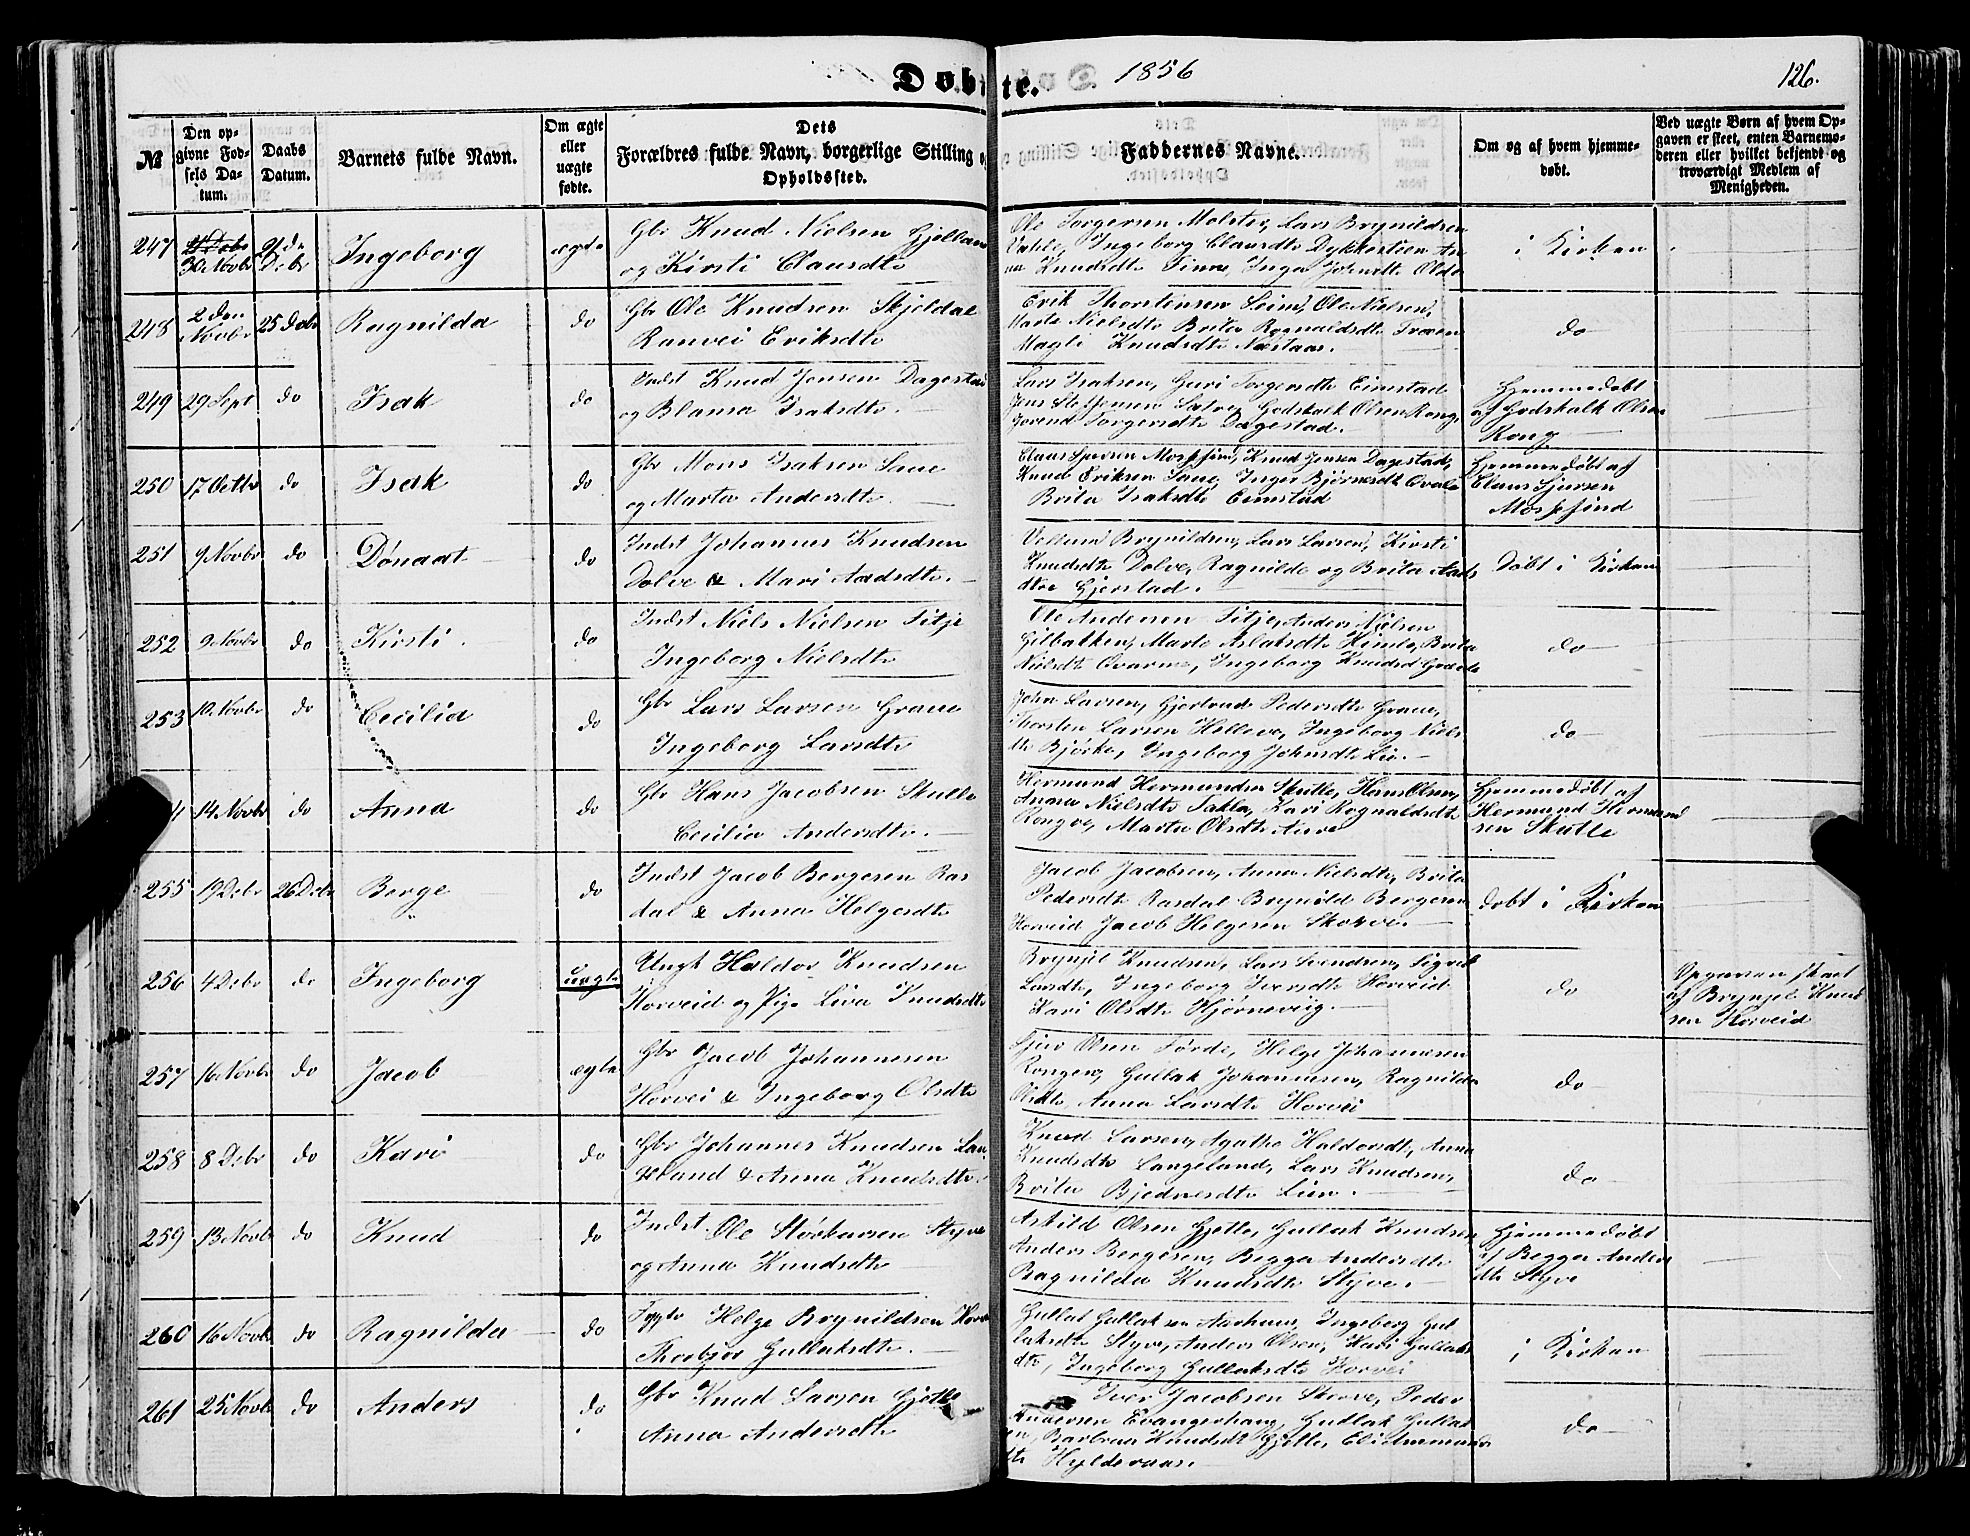 Døbte.
1856
126.
№
Den opgivne Fødsels Datum.
Daabs Datum.
Barnets fulde Navn.
Om ægte eller uægte fødte.
Dets Forældres fulde Navn, borgerlige Stilling og Opholdssted.
Faddernes Navne.
Om og af hvem hjemmedøbt.
Ved uægte Børn af hvem Opgaven er skeet, enten Barnemoderen eller hvilket bekjendt og troværdigt Medlem af Menigheden.
247 30 Novbr 21 de Debr Ingeborg ægte
Gbr Knud Nielsen Gjelland
og Kirsti Clausdtr
Ole Torgersen Molster, Lars Brynildsen
Ingeborg Clausdtr Dykkestien An-
na Knudsdtr Finne, Inga Johnsdtr Olde
i Kirken
248 2 den Novbr 25 Debr Ragnilda do
Gbr Ole Knudsen Skjeldal
Ranvei Eriksdtr
Erik Thorstensen Seim, Ole Nielsen,
Marta Nielsdtr Brita Rognaldsdtr
Magli Knudsdtr Næstaas.
do
249 29 Sept do Isak do
Indst Knud Jensen Dagestad
og Blansa Isaksdtr.
Lars Isaksen, Guri Torgersdtr Eimstad
Jens Sætve, Godskalk Olsen Rong,
Torgersdtr Dagestad.
Hjemmedøbt
af Godskalk Olsen
Rong
250 17 Octbr do Isak do
Gbr Mons Isaksen Saue
og Marta Andersdtr.
Claus Sjursen Mossfind, Knud Jensen Dagestad,
Knud Eriksen Saue, Inger Bjørnsdtr Qvale
Brita Isaksdtr Eimstad
Hjemmedøbt af
Claus Sjursen
Mossfind
251 7 Novbr do Dønaat do
Indst Johannes Knudsen
Dolve & Mari Aadsdtr.
Vellum Brynildsen, Lars Larsen, Kirsti
Knudsdtr Dolve, Ragnilde og Brita Aads
dtre Gjerstad.
Døbt i Kirken
252 9 Novbr do Kirsti. do
Indst Niels Nielsen Fitje
Ingeborg Nielsdtr
Ole Andersen Fitje, Anders Nielsen
Gilbakken, Marte Aslaksdtr Himle, Brita
Nielsdtr Qvarme, Ingeborg Knudsd
do
253 10 Novbr do Cecilia do
Gbr Lars Larsen Graue
Ingeborg Larsdtr
John Larsen, Gjertrud Pedersdtr Graue,
Thorsten Larsen Helleve, Ingeborg Niels
dtr Bjørke, Ingeborg Johnsdtr Lie.
do
14 Novbr do Anna do
Gbr Hans Jacobsen Skulle
Cecilia Andersdtr.
Hermund Hermundsen Skutle, Hans Olsen,
Anna Nielsdtr Takla, Kari Rognaldsdtr
Rongve, Marta Olsdtr
Hjemmedøbt af
Hermund Hermund
sen Skutle
255 19 Debr 26 Debr Berge do
Indst Jacob Bergesen Ras
dal & Anna Helgesdtr
Jacob Jacobsen, Anna Nielsdtr, Brita
Pedersdtr Rasdal Brynild Bergesen
Horveid Jacob Helgesen Skorve.
døbt i Kirken
256 4 Debr do Ingeborg uægte
Ungk Haldor Knudsen
Horveid og Pige Liva Knudsdtr
Brynjel Knudsen, Lars Svendsen, Sigrid
Larsdtr, Ingeborg Iversdtr Horveid
Kari Olsdtr Hjørneviig.
do
Opgaven skeet
af Brynjel Knud
sen Horveid
257 16 Novbr do Jacob ægte
Gbr Jacob Johannesen
Horvei & Ingeborg Olsdtr
Sjur Olsen Førde, Helge Johannesen
Rongen, Gullak Johannesen, Ragnilda
Anna Larsdtr Horvei
do
258 8 Debr do Kari do
Gbr Johannes Knudsen Lan-
geland & Anna Knudsdtr.
Knud Larsen, Agatha Haldorsdtr, Anna
Knudsdtr Langeland, Lars Knudsen,
Brita Bjednesdtr Lien.
do
259 13 Novbr do Knud do
Indst Ole Størkersen Styve
og Anna Knudsdtr
Askild Olsen Gjelle, Gullak Knudsen
Anders Bergesen, Begga Andersdtr
Ragnilda Knudsdtr Styve.
Hjemmedøbt
af Begga Anders
dtr Styve
260 16 Novbr do Ragnilda do
Helge Brynildsen Horvei
Thorbjør Gullaksdtr.
Gullak Gullaksen Aarhuus, Ingeborg Gul
laksdtr Styve, Anders Olsen, Kari Gullaks
dtr, Ingeborg Gullaksdtr Horvei
i Kirken
261 25 Novbr do Anders do
Gbr Knud Larsen Gjelle
Anna Andersdtr
Iver Jacobsen Skorve, Peder
Andersen Evangerhaug, Gullak Gullak
sen, Barbraa Knudsdtr Gjelle,
dtr Hyldevaas.
do